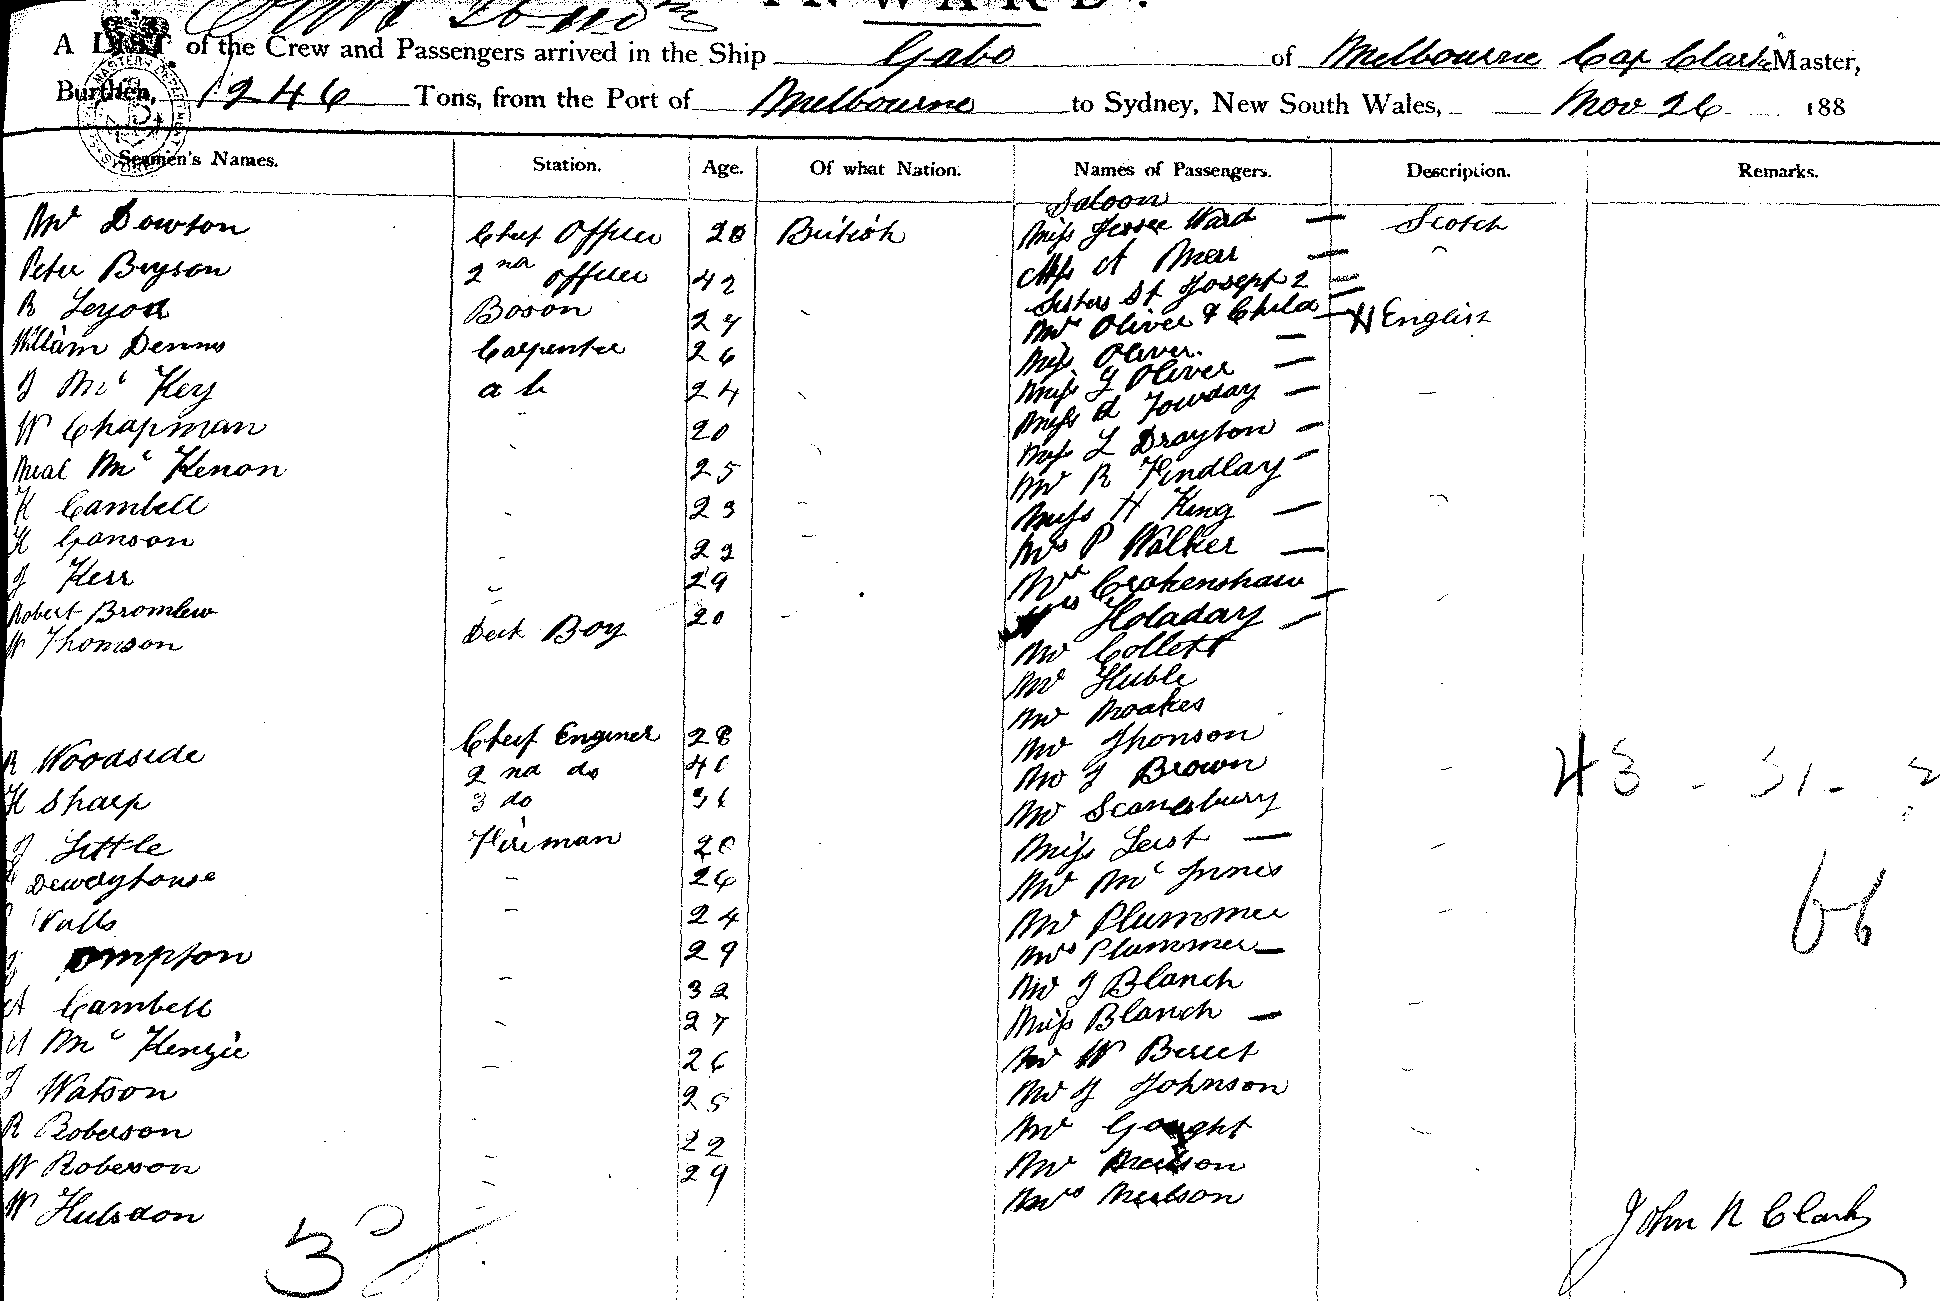 INWARD.
A LIST of the Crew and Passengers arrived in the Ship Gabo of Melbourne Cap Clark Master,
Burthen, 1246 Tons, from the Port of Melbourne to Sydney, New South Wales, Nov 26 188
Seamen's Names. Station. Age. Of what Nation. Names of Passengers. Description. Remarks.
Saloon
Mr Dowton Chief Officer 28 British Miss Jessee Ward — Scotch
Peter Bryson 2nd Officer 42 A Meir —
Sisters St Joseph 2 =
R Leyod Boson 27 Mrs Oliver & Child — English
William Dennis Carpenter 26 Miss Oliver —
J Mc Key a b 24 Miss J Oliver —
W Chapman 20 Miss Towday —
Neal Mc Kenon 25 Miss L Drayton —
Mr R Findlay —
H Cambell 23 Miss H King —
H Ganson 22 Mrs P Walker —
J Kerr 29 Mr Crokenshaw
Robert Bromlew 20 Mrs Holaday —
W Thomson Deck Boy Mr Collett
Mr Huble
Mr Noakes
R Woodside Chief Enginer 28 Mr Thonson
H Sharp 2nd do 40 Mr J Brown
J Little 3 do 36 Mr Scanesbury
Dewdyhouse Fireman 20 Miss Leist —
Walls 26 Mr Mc Innes
ompton 24 Mr Plummer
A Cambell 29 Mrs Plummer —
Mc Kenzie 32 Mr J Blanch
J Watson 27 Miss Blanch —
R Roberson 26 Mr W Beret
W Roberson 25 Mr J Johnson
W Hulsdon 22 Mr Gought
29 Mr Neilson
Mrs Neilson
43 - 31 -
66
John R Clark